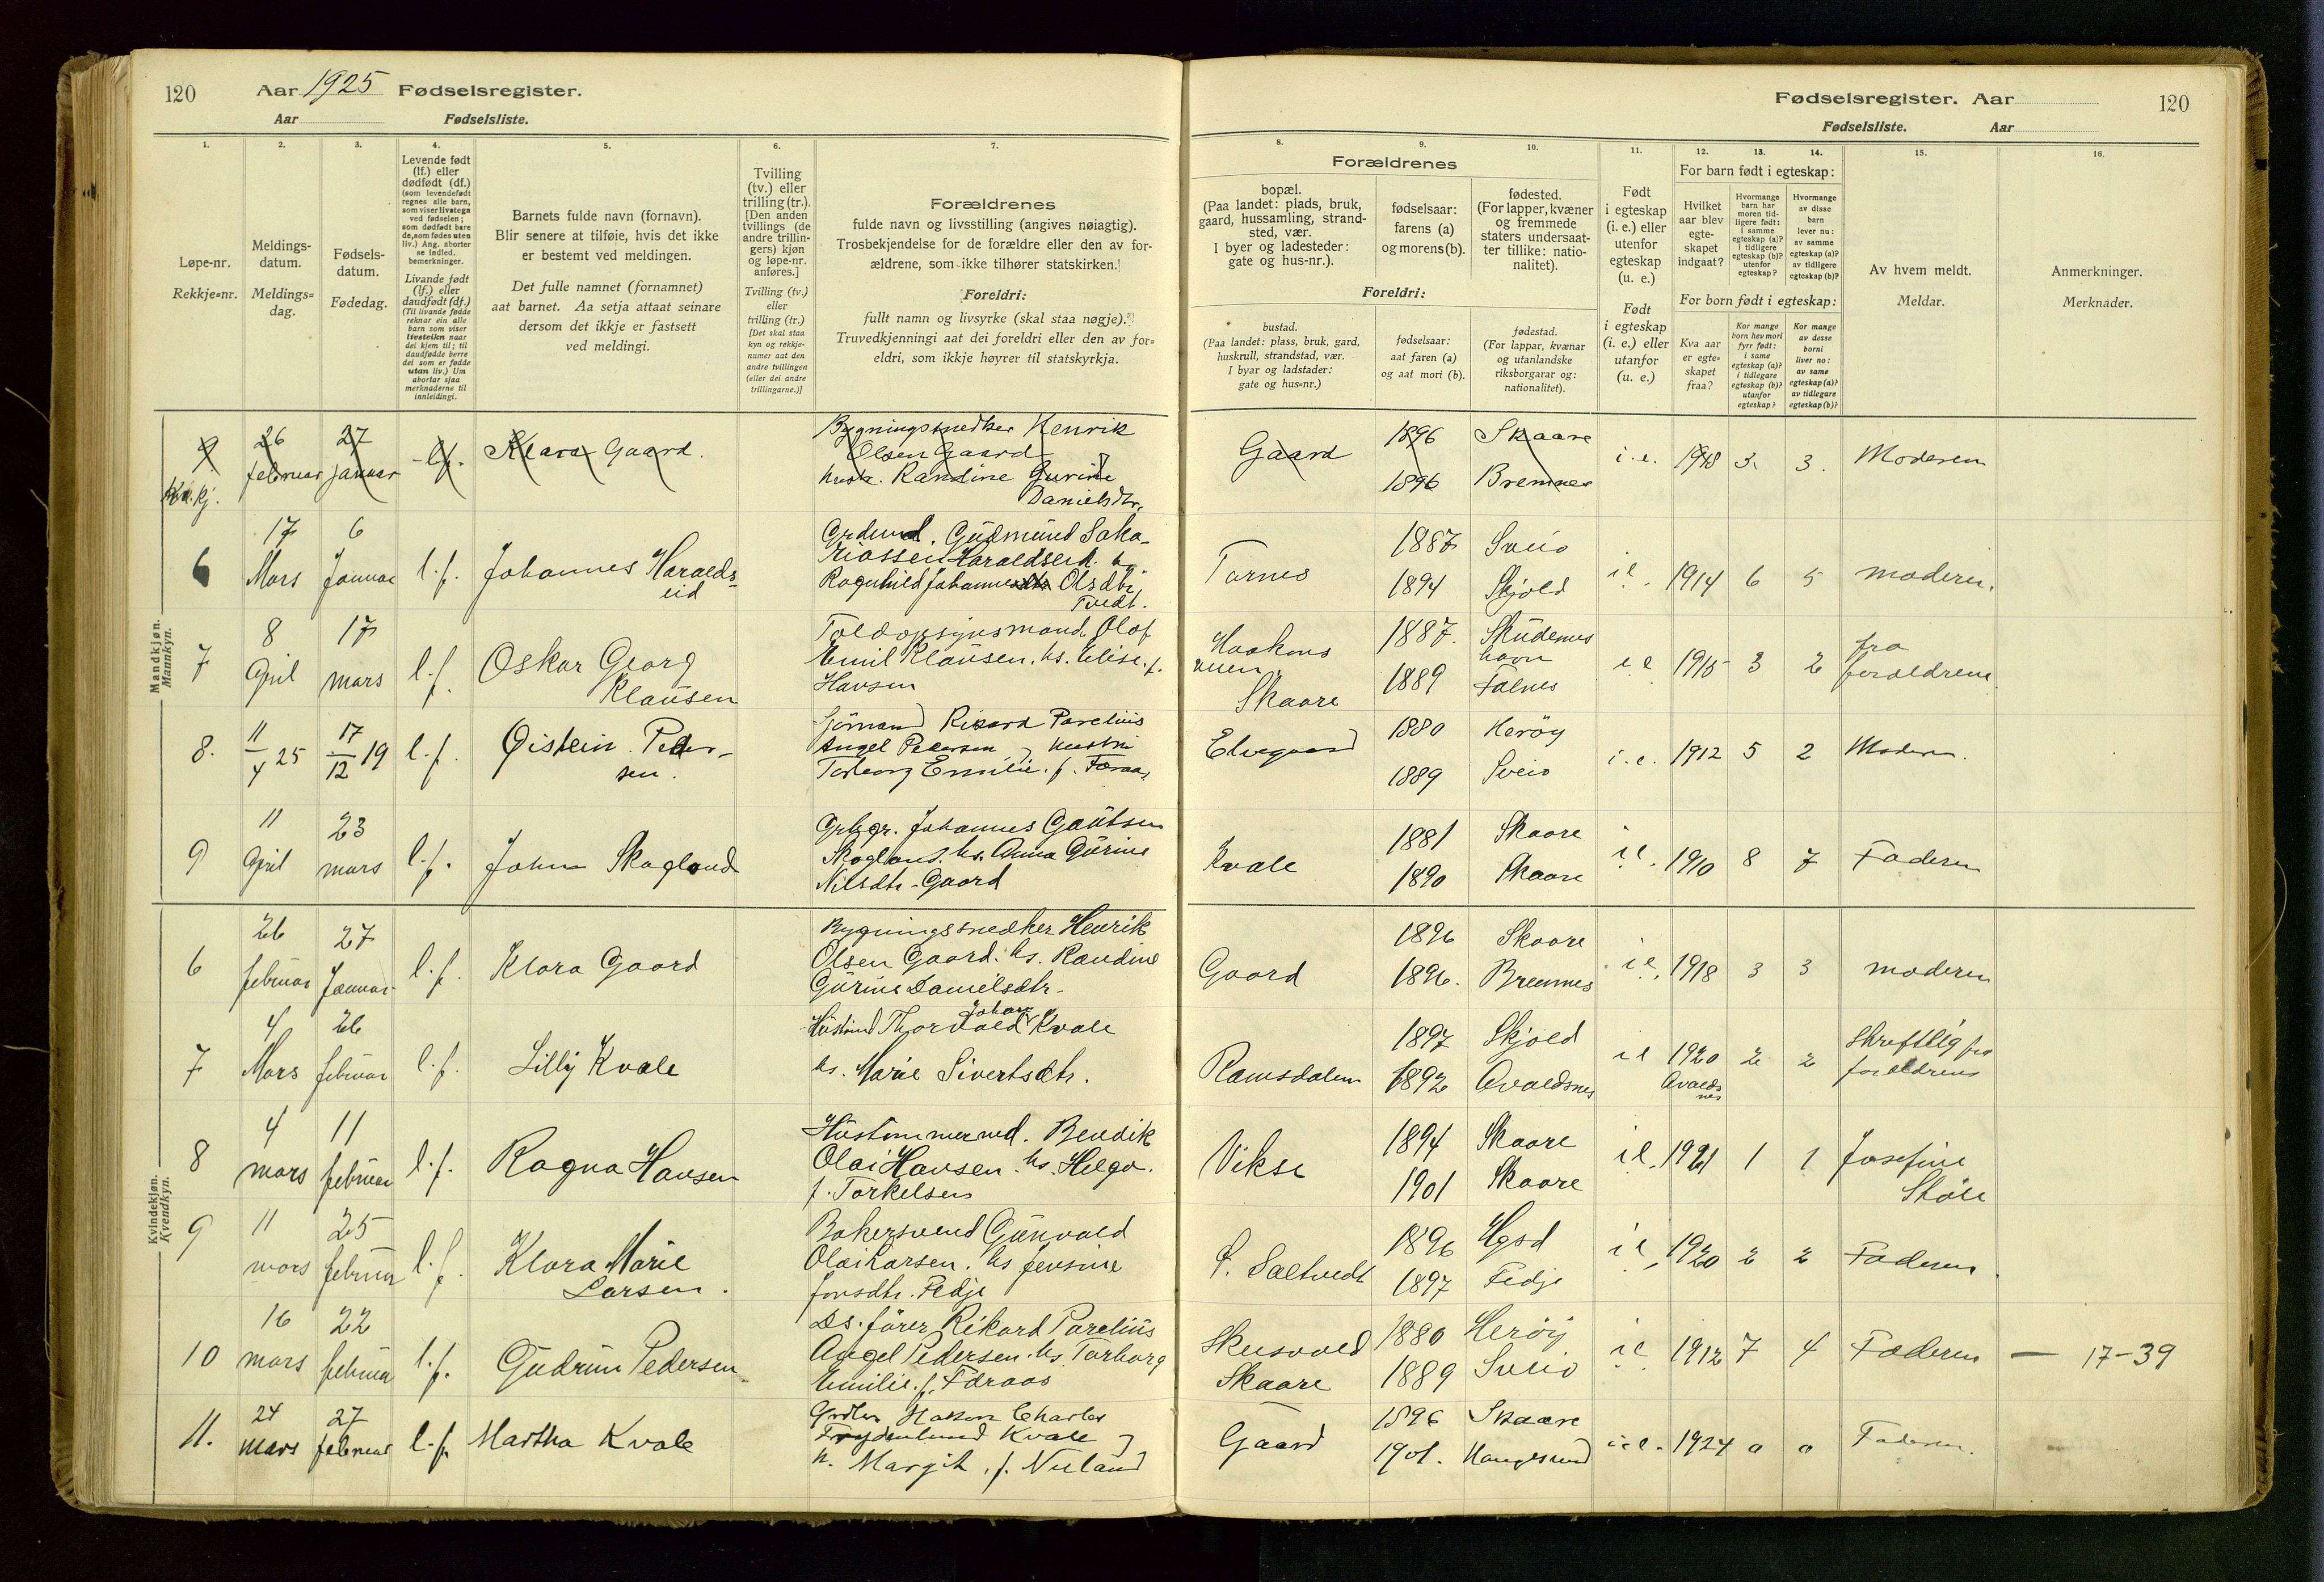 120
Aar 1925 Fødselsregister.
Aar Fødselsliste.
Fødselsregister. Aar
120
Fødselsliste. Aar
1.
2.
3.
4.
5.
6.
7.
8.
9.
10.
11.
12.
13.
14.
15.
16.
Løpe-nr.
Rekkje=nr.
Meldings-
datum.
Meldings=
dag.
Fødsels-
datum.
Fødedag.
Levende født
(lf.) eller
dødfødt (df.)
(som levendefødt
regnes alle barn,
som viser livstegn
ved fødselen;
som dødfødt bare
de, som fødes uten
liv.) Ang. aborter
se indled.
bemerkninger.
Livande født
(lf.) eller
daudfødt (df.)
(Til livande fødde
reknar ein alle
barn som viser
livsteikn naar
dei kjem til; til
daudfødde berre
dei som er fødde
utan liv.) Um
abortar sjaa
merknaderne til
innleidingi.
Barnets fulde navn (fornavn).
Blir senere at tilføie, hvis det ikke
er bestemt ved meldingen.
Det fulle namnet (fornamnet)
aat barnet. Aa setja attaat seinare
dersom det ikkje er fastsett
ved meldingi.
Tvilling
(tv.) eller
trilling (tr.).
[Den anden
tvillings (de
andre trillin-
gers) kjøn
og løpe-nr.
anføres.]
Tvilling (tv.)
eller
trilling (tr.)
[Det skal staa
kyn og rekkje-
numer aat den
andre tvillingen
(eller dei andre
trillingarne.)]
Forældrenes
fulde navn og livsstilling (angives nøiagtig).
Trosbekjendelse for de forældre eller den av for-
ældrene, som ikke tilhører statskirken.
Foreldri:
fullt namn og livsyrke (skal staa nøgje).
Truvedkjenningi aat dei foreldri eller den av for=
eldri, som ikkje høyrer til statskyrkja.
Forældrenes
bopæl.
(Paa landet: plads, bruk,
gaard, hussamling, strand-
sted, vær.
I byer og ladesteder:
gate og hus-nr.).
fødselsaar:
farens (a)
og morens (b).
fødested.
(For lapper, kvæner
og fremmede
staters undersaat-
ter tillike: natio-
nalitet).
Foreldri:
bustad.
(Paa landet: plass, bruk, gard,
huskrull, strandstad, vær.
I byar og ladstader:
gate og hus=nr.)
fødselsaar:
aat faren (a)
og aat mori (b).
fødestad.
(For lappar, kvænar
og utanlandske
riksborgarar og:
nationalitet).
Født
i egteskap
(i. e.) eller
utenfor
egteskap
(u. e.)
Født
i egteskap
(i. e.) eller
utanfor
(u. e.)
For barn født i egteskap:
Hvilket
aar blev
egte-
skapet
indgaat?
Hvormange
barn har
moren tid-
ligere født:
i samme
egteskap (a)?
i tidligere
egteskap (b)?
utenfor
egteskap?
Hvormange
av disse
barn
lever nu:
av samme
egteskap (a)?
av tidligere
egteskap (b)?
For born født i egteskap:
Kva aar
er egte=
skapet
fraa?
Kor mange
born hev mori
fyrr født:
i same
egteskap (a)?
i tidlegare
egteskap (b)?
utanfor
egteskap?
Kor mange
av desse
borni
liver no:
av same
egteskap (a)?
av tidlegare
egteskap (b)?
Av hvem meldt.
Meldar.
Anmerkninger.
Merknader.
Mandkjøn.
Mannkyn.
Kvindekjøn.
Kvendkyn.
9 26 februar 27 januar l.f. Klara Gaard. Bygningssnedker Henrik
Olsen Gaard
hustr. Randine Gurine
Danielsdtr.
Gaard 1896 Skaare
1896 Bremnes
i.e. 1918 3. 3. Moderen
kv.kj.
6 17 Mars 6 Januar l.f. Johannes Haralds-
eid
Grdmd. Gudmund Saka-
riassen Haraldseid. hs
Ragnhild Johannesdtr Olsdtr
Tvedt.
Tornes 1887 Sveio
1894 Skjold
i.e. 1914 6 5 moderen.
7 8 April 17 mars l.f. Oskar Georg
Klausen
Toldopsynsmand Olaf
Emil Klausen. hs. Elise. f.
Hansen
Haakons
Skaare
1887. Skudenes
havn
1889 Falnes
i e 1915 3 2 fra
foreldrene
8. 11/4 25 17/12 19 l.f. Øistein Peder-
sen.
Sjömand Rikard Parelius
Angel Pedersen, hustru
Torborg Emilie. f. Føraas
1880 Herøy
1889 Sveio
i.e. 1912 5 2 Moderen.
9 11 April 23 mars l.f. John Skogland
Johannes Gautsen
Skogland. hs. Anna Gurine
Nilsdtr. Gaard
Kvale 1881 Skaare
1890 Skaare
i.e. 1910 8 7 Faderen
6 26 februar 27 Januar l.f. Klara Gaard
Bygningssnedker Henrik
Olsen Gaard. hs. Randine
Gurine Danielsdtr.
Gaard 1896 Skaare
1896. Bremnes
i e. 1918 3 3 moderen
7 4 Mars 26 februar l.f. Lilly Kvale
Thorvald Johan Kvale
hs. Marie Sivertsdtr.
Ramsdalen 1897 Skjold
1892 Avaldsnes
i e 1920 2 2 Skriftlig fra
foreldrene
Avalds
nes
8 4 mars 11 februar l.f. Ragna Hansen
Hustømmermd. Bendik
Olai Hansen. hs. Helga.
f. Torkelsen
Vikse 1894 Skaare
1901 Skaare
i e. 1921 1 1 Josefine
Støle
9 11 mars 25 februar l.f. Klara Marie
Larsen.
Bakersvend Gunvald
Olai Larsen. hs Jensine
Jonsdtr. Fedje
S. Saltvedt 1896
1897 Fedje
i e. 1920 2 2 Faderen
10 16 mars 22 februar l.f. Gudrun Pedersen
Ds. fører Rikard Parelius
Angel Pedersen. hs. Torborg
Emilie. f. Føraas
Skeisvold
Skaare
1880 Herøy
1889 Sveio
i e 1912 7 4 Faderen — 17-39
11. 24 mars 27 februar l.f. Martha Kvale
Hakon Charles
Frydenlund Kvale
h. Margit, f. Nuland
Gaard 1896 Skaare
1901. Haugesund
i.e. 1924 0 0 Faderen.